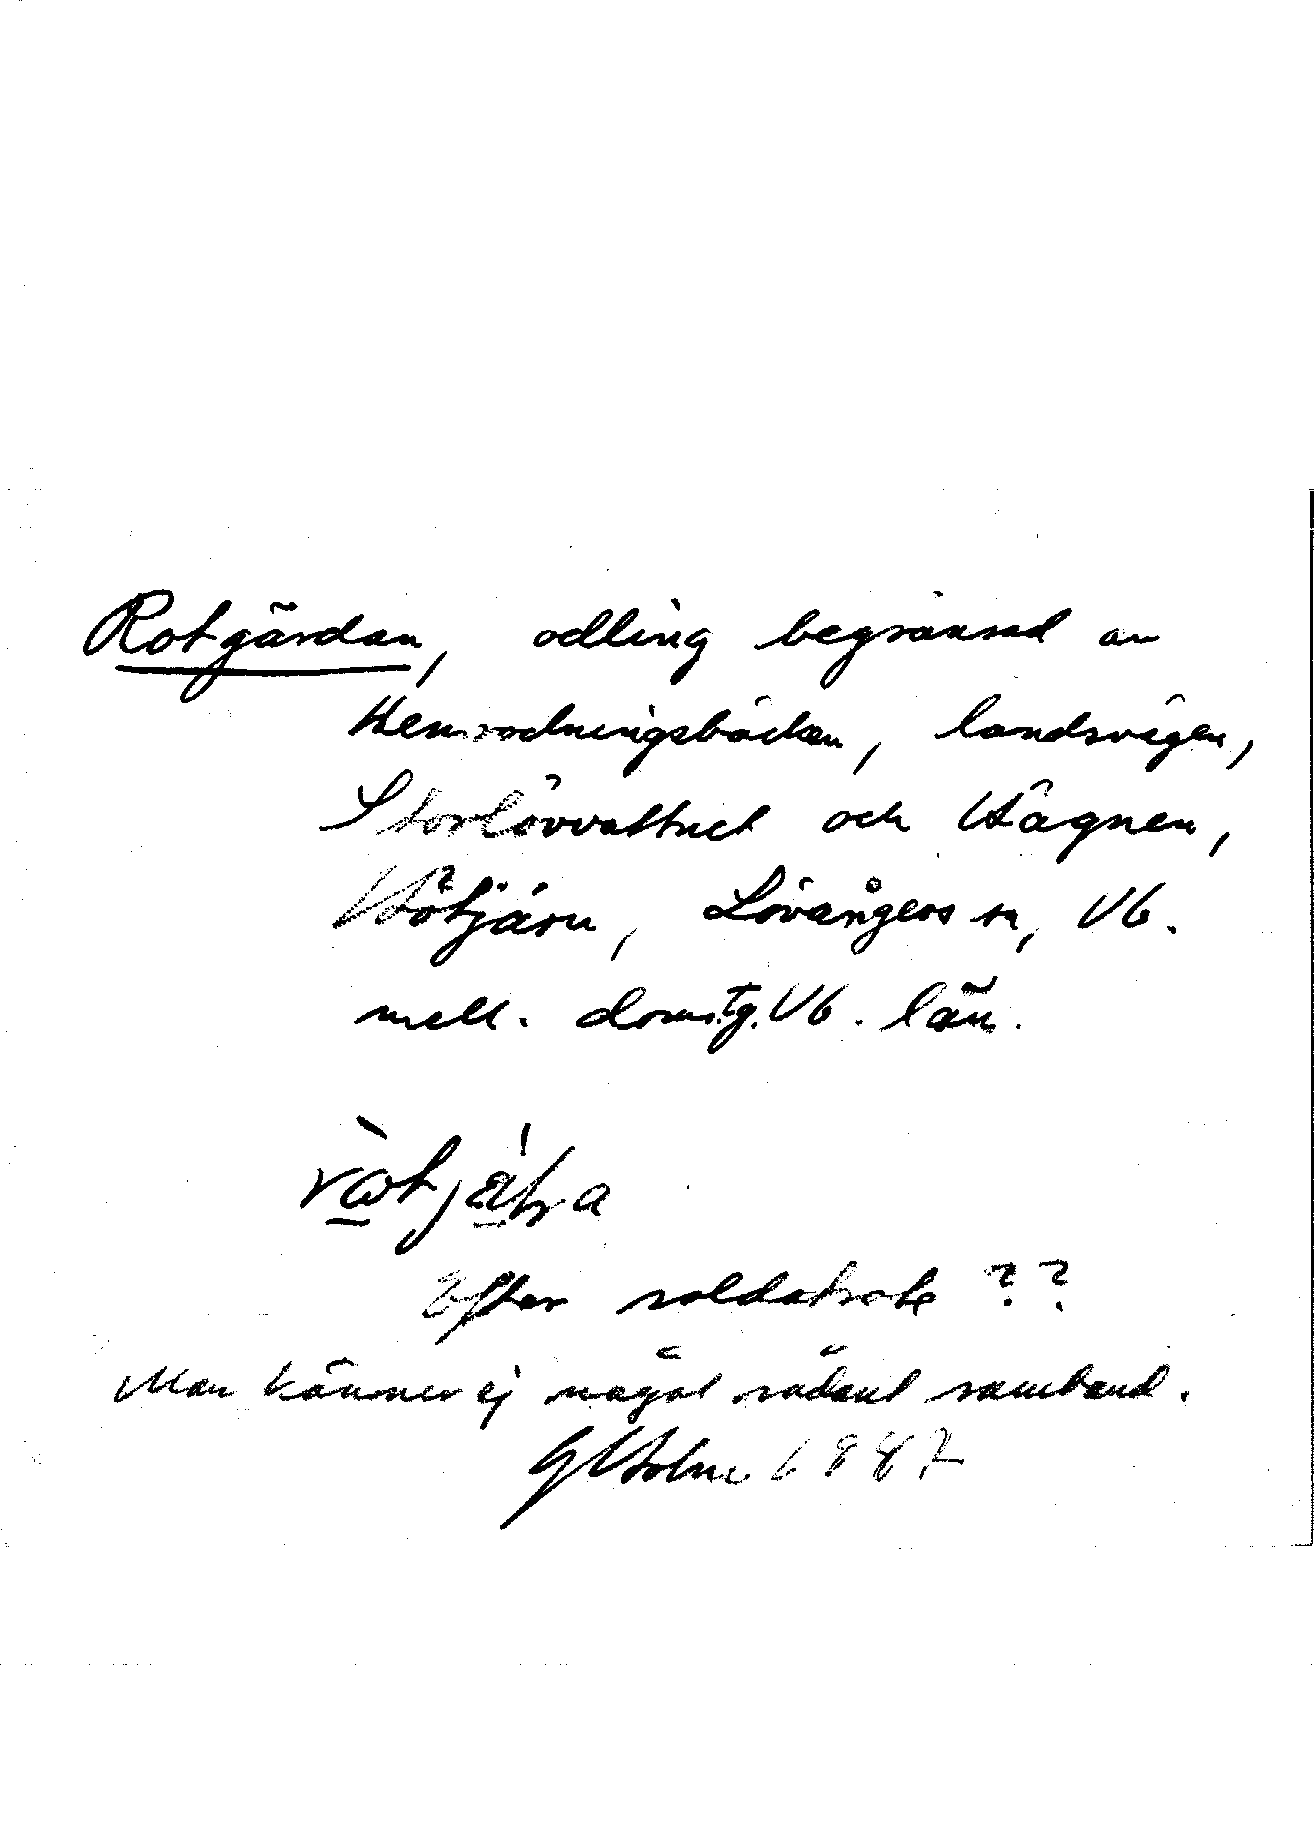 Rotgärdan, odling begränsad av
Hemrodningsbäcken, landsvägen,
Storlövvattnet och Hägnen,
Hötjärn, Lövångers sn, Vb.
mell. doms.tg. Vb. län.
Efter soldatrote ??
Man känner ej något sådant samband.
G Holm 1987